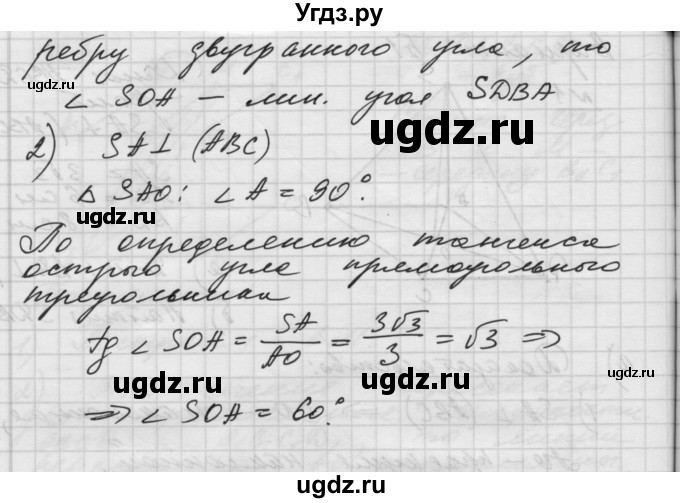 Угдз.ру
ребру двугранного угла, то
∠ SOA — лин. угол SDBA
ugdz.ru
2) SA⊥ (ABC)
ugdz.ru
△ SAO: ∠A = 90°.
ugdz.ru
По определению тангенса
острого угла прямоугольного
ugdz.ru
треугольника
tg ∠ SOA = SA/AO = 3√3/3 = √3 ⇒
ugdz.ru
ugdz.ru
⇒ ∠ SOA = 60°.
ugdz.ru